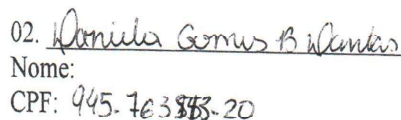 02. Daniela Gomes B Dantas
Nome:
CPF: 945.763.-20